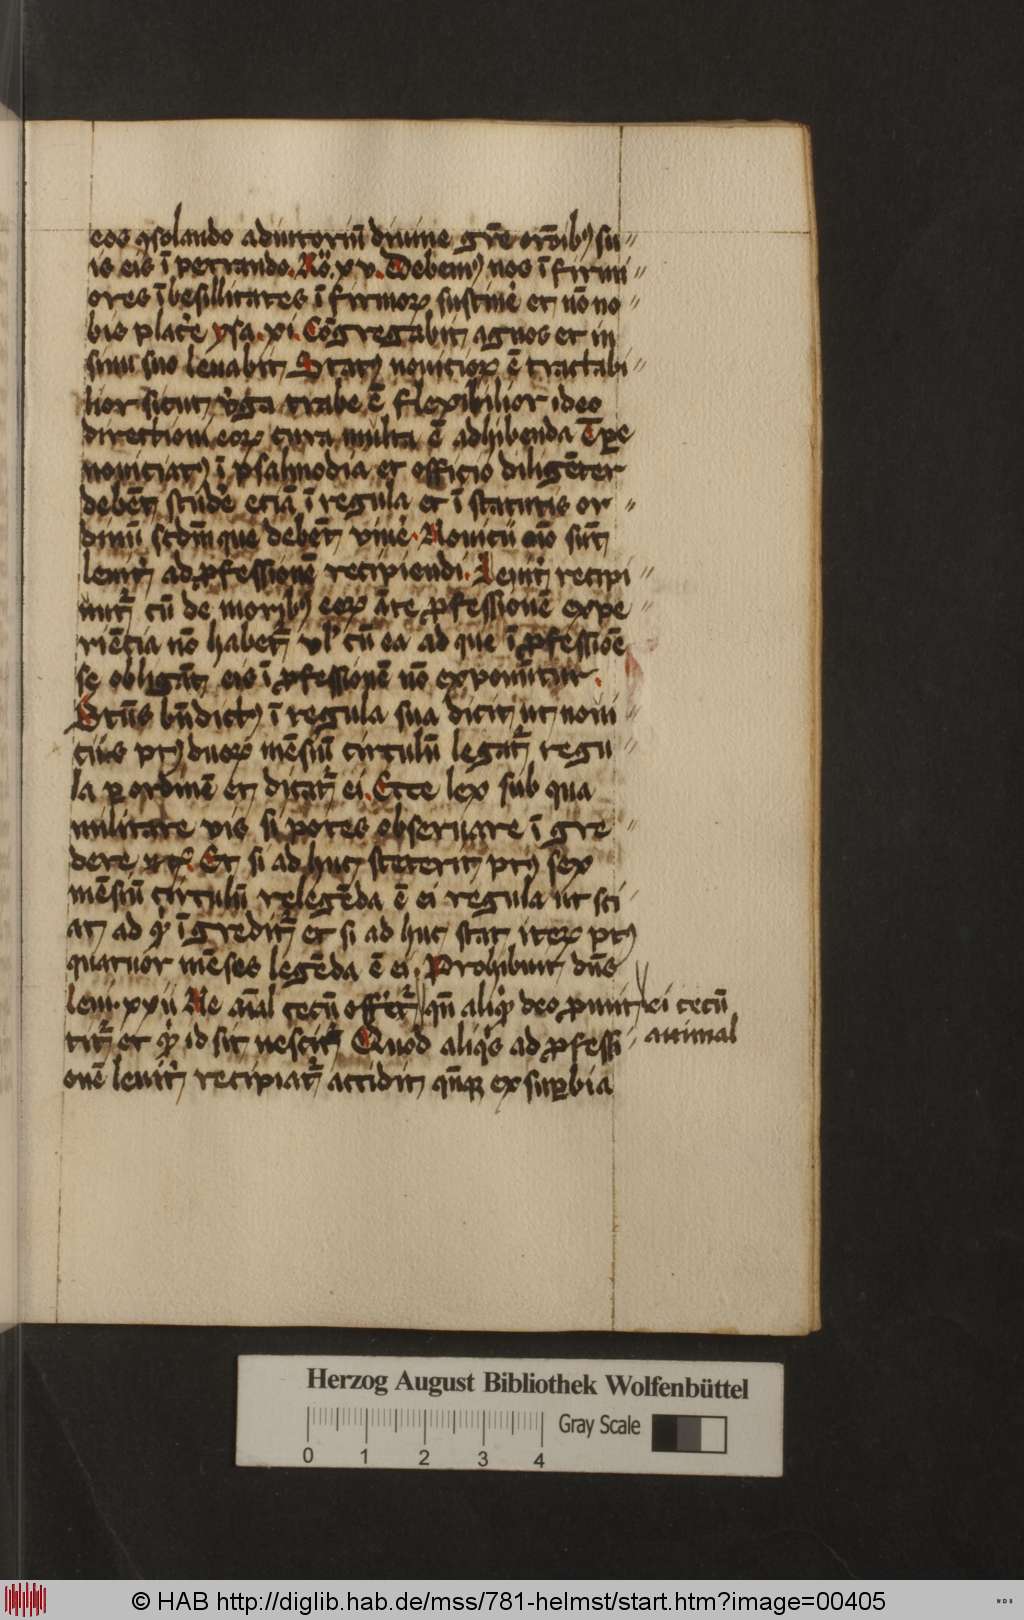 eos ꝯsolando adiutoriū diuine gr̄e or̄oibꝰ su〃
is eis ī petrando. Ro. xv. Debemꝰ nos ī firmi〃
ores ībesillitates ī firmoꝝ sustinē et nō no〃
bis placē ysa. xi. Cōgregabit agnos et in
sinu suo leuabit Statꝰ nouicioꝝ ē tractabi〃
lior sicut v̓ga trabe ē flexibilior ideo
directioni eoꝝ cura multa ē adhibenda Tꝑe
nouiciatꝰ ī psalmodia et officio diligēter
debēt studē eciā ī regula et ī statutis or〃
dinū scdm̄ que debēt viuē. Nouicii nō sūt
leuitͥ ad ꝓfessionē recipiendi. Leuitͥ recipi〃
ūtᷣ cū de moribꝰ eoꝝ āte ꝓfessionē expe〃
riēcia nō habetᷣ vl̓ cū ea ad que ī ꝓfessiōe
se obligāt eis ī ꝓfessionē nō exponūtur.
Sctūs bn̄dictꝰ ī regula sua dicit ut noui〃
cius ptꝰ duoꝝ mēsiū circulū legatᷣ regu〃
la ꝑ ordinē et dicatᷣ ei. Ecce lex sub qua
militare vis si potes obseruare ī gre〃
dere etc̄. Et si ad huc steterit ptꝰ sex
mēsiū circulū relegēda ē ei regula ut sci〃
at ad qͥ īgreditᷣ et si ad huc stat iteꝝ ptꝰ
quatuor mēses legēda ē ei. Prohibuit dn̄s
leui. xxii Ne aīal cecū offerᷣ qn̄ aliqͥ deo ꝓmit〃 ei cecū
titᷣ et qͥ id sit nescitᷣ Quod aliqͥs ad ꝓfessi〃 animal
onē leuitͥ recipiatᷣ accidit qn̄qꝫ ex suꝑbia
Herzog August Bibliothek Wolfenbüttel
Gray Scale
0 1 2 3 4
© HAB http://diglib.hab.de/mss/781-helmst/start.htm?image=00405